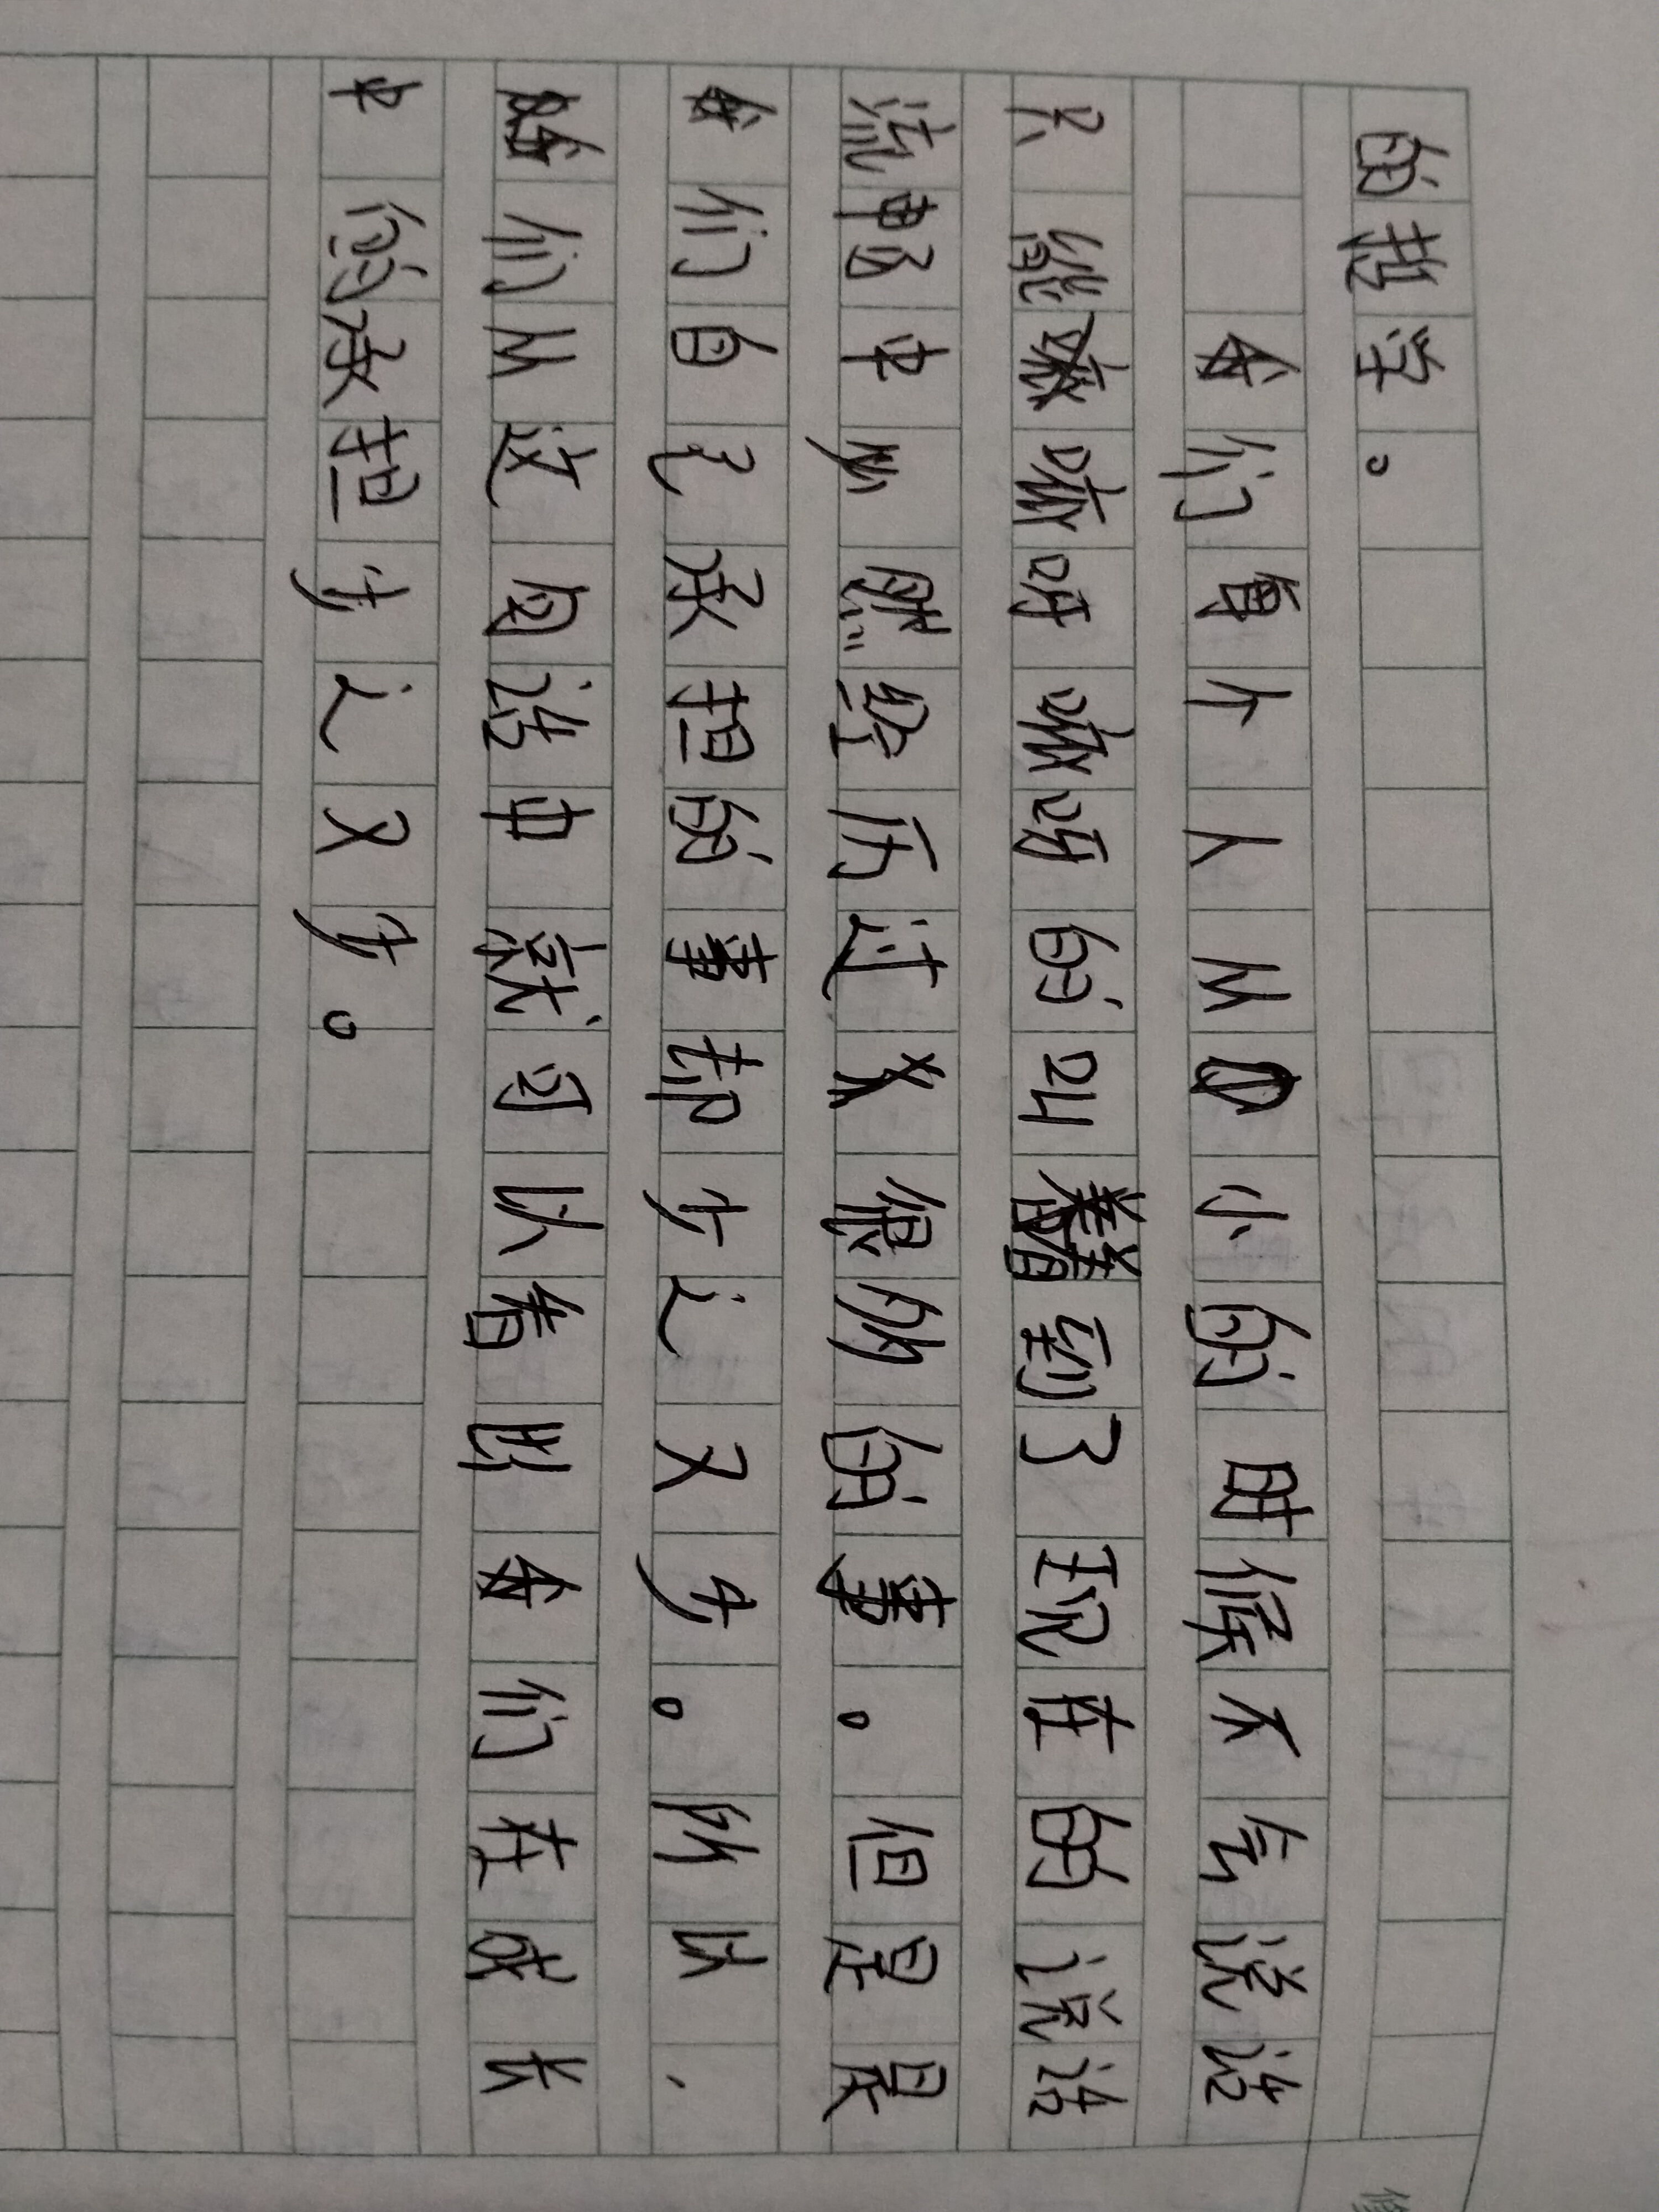 的哲学。
我们每个人从小的时候不会说话
只能的叫到了现在的说话
流畅中虽然经历过很多的事。但是
我们自己承担的事却少之又少。所以,
我们从这句话中就可以看出我们在成长
中的承担少之又少。